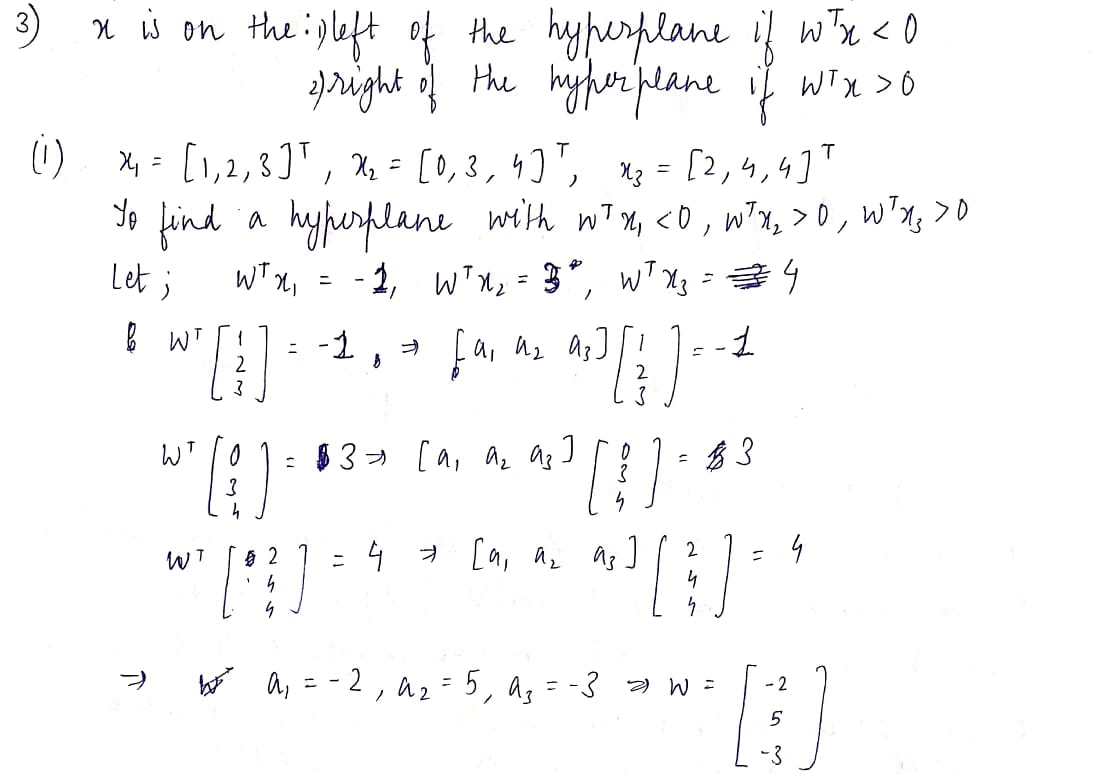 3) x is on the : 1) left of the hyperplane if wᵀx < 0
2) right of the hyperplane if wᵀx > 0
(i) x₁ = [1,2,3]ᵀ, x₂ = [0,3,4]ᵀ, x₃ = [2,4,4]ᵀ
To find a hyperplane with wᵀx₁ < 0, wᵀx₂ > 0, wᵀx₃ > 0
Let ; wᵀx₁ = -1, wᵀx₂ = 3, wᵀx₃ = 4
wᵀ [1 2 3] = -1, ⇒ [a₁ a₂ a₃] [1 2 3] = -1
wᵀ [0 3 4] = 3 ⇒ [a₁ a₂ a₃] [0 3 4] = 3
wᵀ [2 4 4] = 4 ⇒ [a₁ a₂ a₃] [2 4 4] = 4
⇒ a₁ = -2, a₂ = 5, a₃ = -3 ⇒ w = [-2 5 -3]